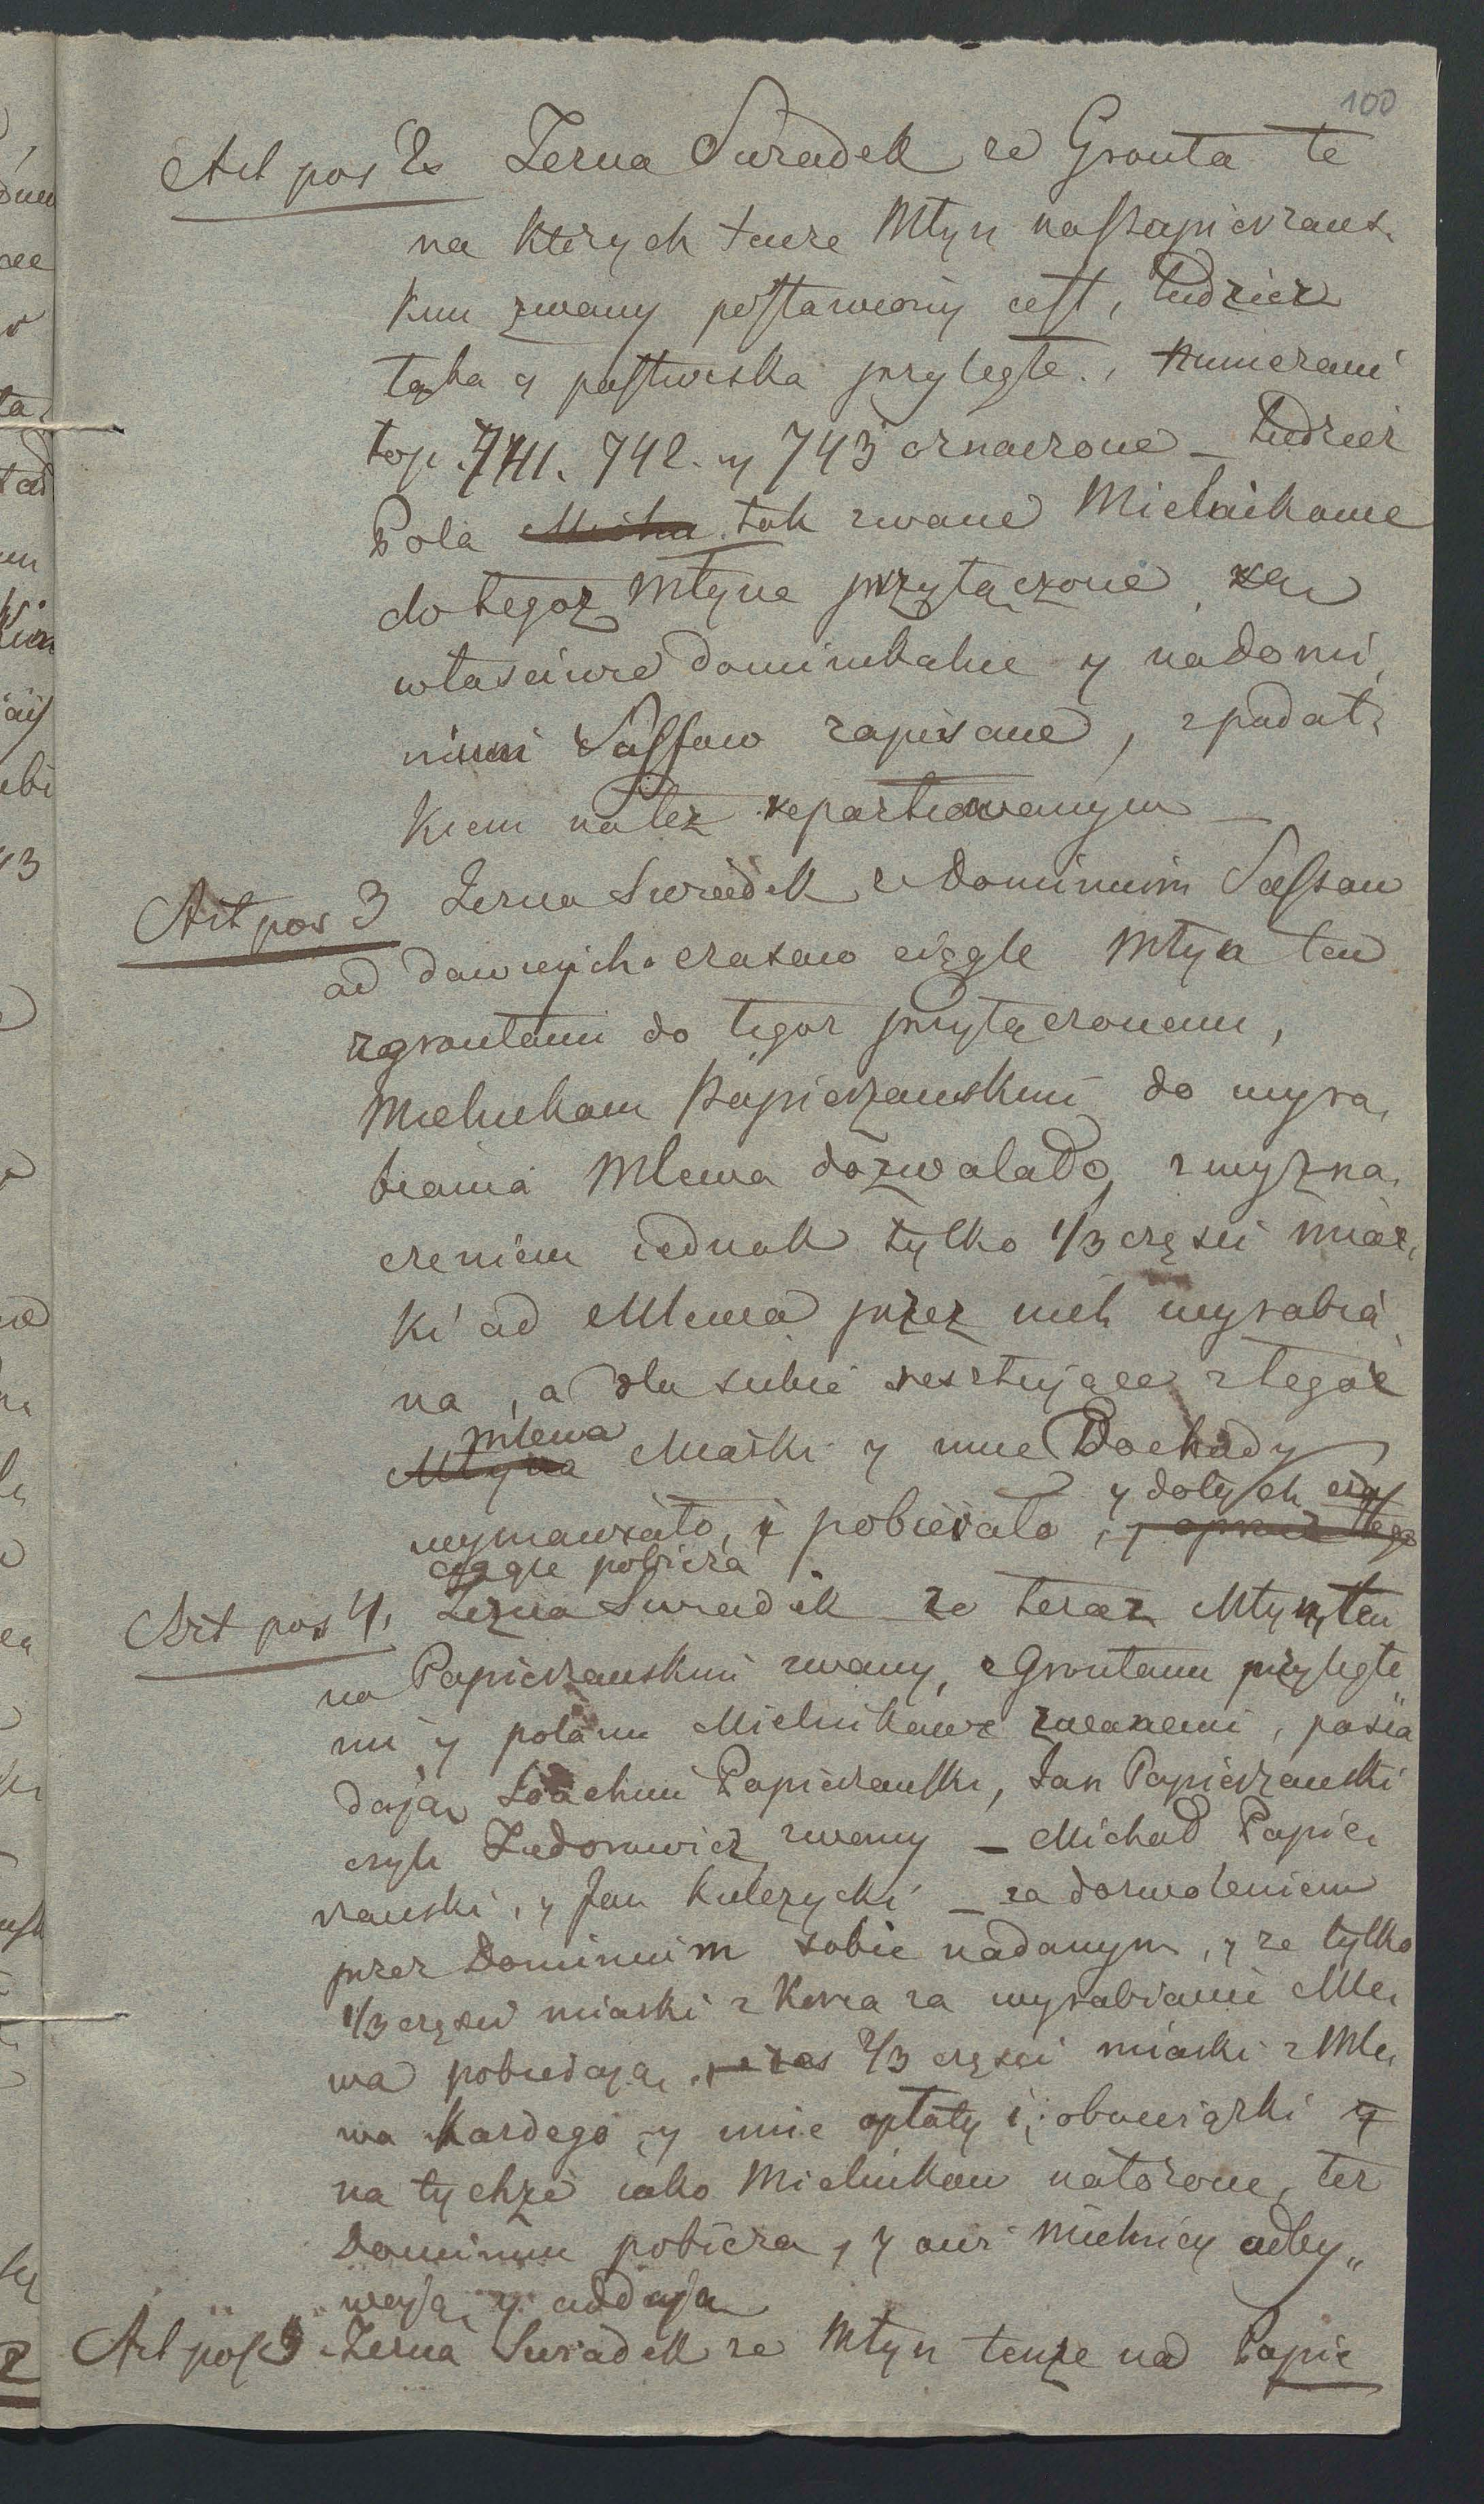 100
Art pos 2. Zezna Swiadek ze Gronta te
na których tenze Młyn na Papierzans,
kim zwany postawiony iest, tudziez
łąka y pastwiska przyległe, numerami
top. 741. 742. y 743 oznaczone _ tudzież
Pola tak zwane Mielnikowe
do tegoz Młyna przyłączone, są
własciwie dominikalne y na domi,
nium Sassow zapisane, z podat,
kiem na też repartiowanym _
Art pos 3 Zezna Swiadek ze Dominium Sassow
od dawnych czasow ciągle Młyn ten
z grontami do tegoz przyłączonemi,
Mielnikom Papierzanskim do wyra,
biania Mlewa dozwalało, z wyzna,
czeniem iednak tylko 1/3 części miar,
ki od Mlewa przez nich wyrabia
na, a dla siebie resztujące z tegoż
mlewa
Młyna Miarki y inne Dochody
y dotych czas
wymawiało, i pobierało, y oprócz tego
ciągle pobiera
Art pos 4. Zezna Swiadek ze teraz Młyn ten
na Papierzanskim zwany, z Grontami przyległe
mi y polami Mielnikowe zwanemi, posia
dają Joachim Papierzanski, Jan Papierzanski
czyli Fedorowicz zwany _ Michał Papie,
rzanski, y Jan Kulczycki _ za dozwoleniem
przez Dominium sobie nadanym, y ze tylko
1/3 części miarki z Korca za wyrabianie Mle,
wa pobierają, zas 2/3 części miarki z Mle,
wa kazdego y inne opłaty i obowiązki y
na tychże iako Mielnikow nałożone, też
Dominium pobiera, y oni Mielnicy odby„
wają y oddają
Art pos 5 Zezna Swiadek ze Młyn tenże na Papie